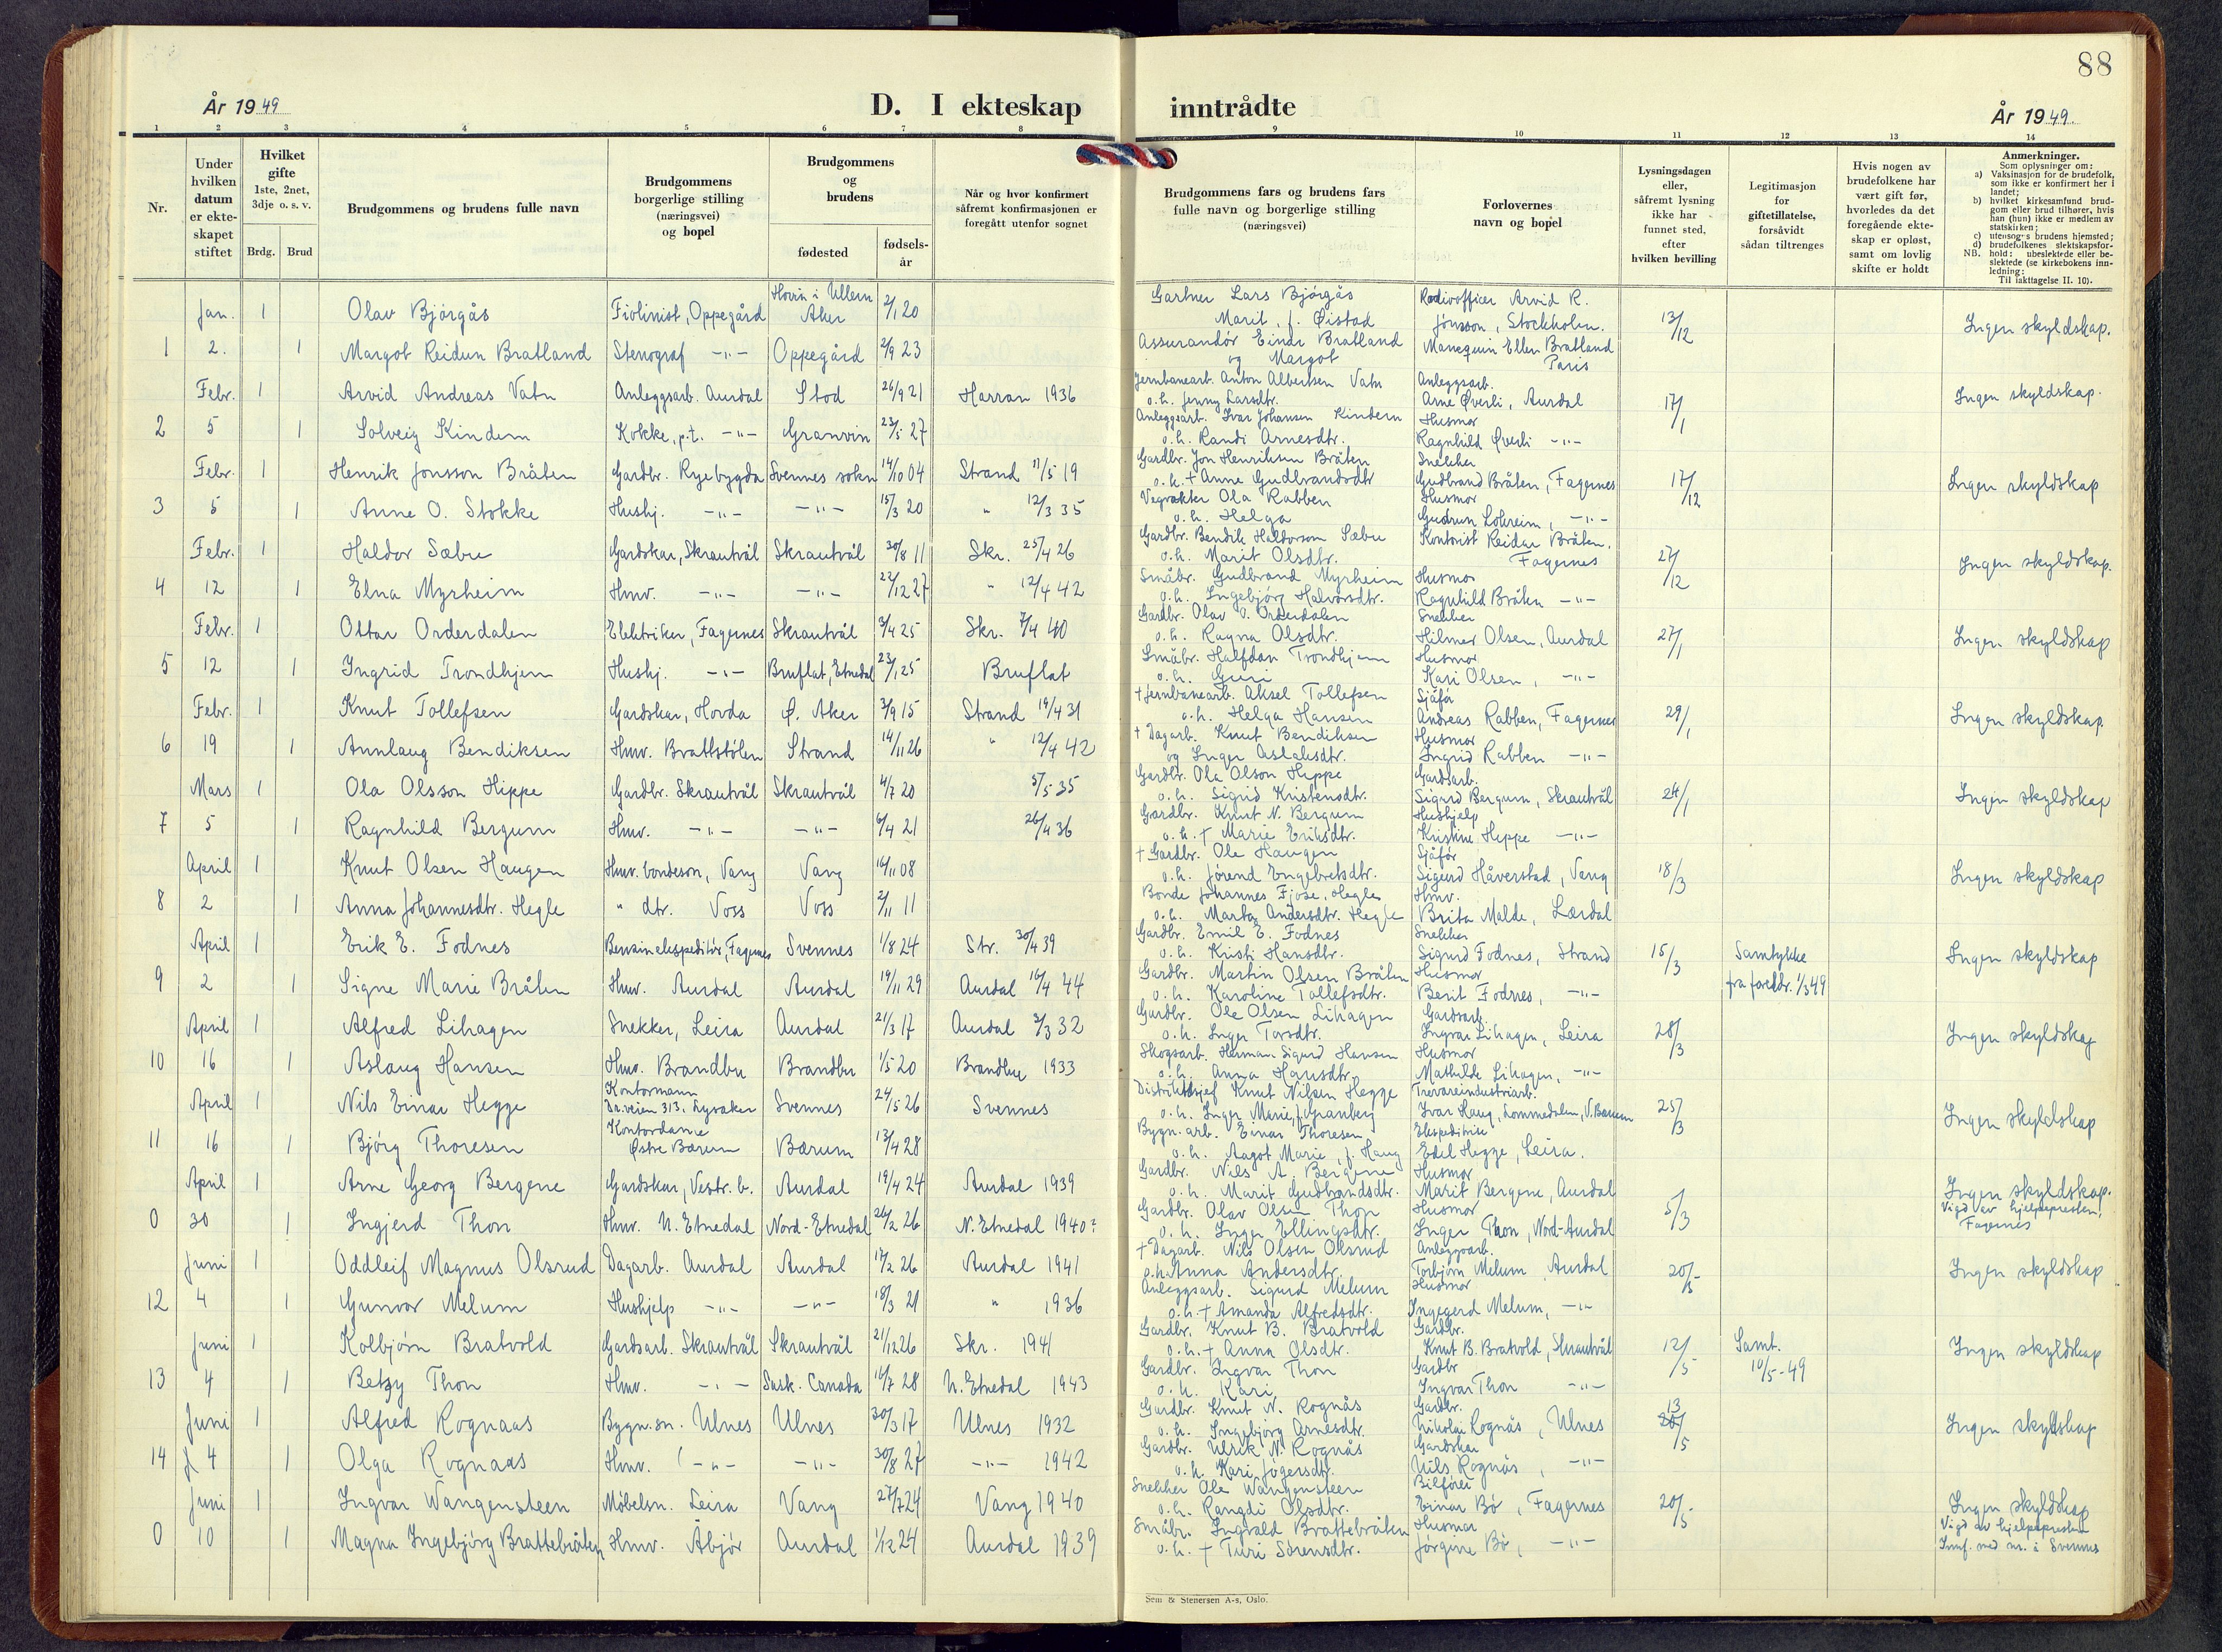 88
År 1949
D. I ekteskap
inntrådte
År 1949.
1 2 3 4 5 6 7 8 9 10 11 12 13 14
Nr.
Under hvilken datum er ekte-skapet stiftet
Hvilket gifte 1ste, 2net, 3dje o. s. v.
Brdg. Brud
Brudgommens og brudens fulle navn
Brudgommens borgerlige stilling (næringsvei) og bopel
Brudgommens og brudens
fødested
fødsels-år
Når og hvor konfirmert såfremt konfirmasjonen er foregått utenfor sognet
Brudgommens fars og brudens fars fulle navn og borgerlige stilling (næringsvei)
Forlovernes navn og bopel
Lysningsdagen eller, såfremt lysning ikke har funnet sted, efter hvilken bevilling
Legitimasjon for giftetillatelse, forsåvidt sådan tiltrenges
Hvis nogen av brudefolkene har vært gift før, hvorledes da det foregående ekte-skap er opløst, samt om lovlig skifte er holdt
Anmerkninger.
Som oplysninger om:
a) Vaksinasjon for de brudefolk, som ikke er konfirmert her i landet;
b) hvilket kirkesamfund brud-gom eller brud tilhører, hvis han (hun) ikke er medlem av statskirken;
c) utensogns brudens hjemsted;
d) brudefolkenes slektskapsfor-hold: ubeslektede eller be-slektede (se kirkebokens inn-ledning:
NB.
Til iakttagelse II. 10).
Jan. 1 Olav Bjørgås Fiolinist, Oppegård Hovin i Ullern Aker 2/1 20 Gartner Lars Bjørgås Marit, f. Øistad Radiooffiser Arvid R. Jönsson, Stockholm. 13/12 Ingen skyldskap.
1 2. 1 Margot Reidun Bratland Stenograf -"- Oppegård 2/9 23 Assurandør Einar Bratland og Margot Manequin Ellen Bratland Paris
Febr. 1 Arvid Andreas Vatn Anleggsarb. Aurdal Stod 26/9 21 Harran 1936 Jernbanearb. Anton Albertsen Vatn o.h. Jenny Larsdtr. Anleggsarb. Arne Øverli, Aurdal 17/1 Ingen skyldskap.
2 5 1 Solveig Kindem Kokke, p.t. -"- Granvin 23/5 27 Anleggsarb. Ivar Johansen Kindem o.h. Randi Arnesdtr. Husmor Ragnhild Øverli -"-
Febr. 1 Henrik Jonsson Bråten Gardbr. Ryebygda Svennes sokn 14/10 04 Strand 11/5 19 Gardbr. Jon Henriksen Bråten o.h. + Anne Gudbrandsdtr Snekker Gudbrand Bråten, Fagernes 17/12 Ingen skyldskap
3 5 1 Anne O. Stokke Hushj. -"- -"- 15/3 20 " 12/3 35 Vegvakter Ola Rabben o.h. Helga Husmor Gudrun Lohreim, -"-
Febr. 1 Haldor Sæbu Gardskar, Skrautvål Skrautvål 30/8 11 Skr. 25/4 26 Gardbr. Bendik Haldorson Sæbu o.h. Marit Olsdtr. Kontorist Reidar Bråten, Fagernes 27/12 Ingen skyldskap.
4 12 1 Elna Myrheim Hmv. -"- -"- 22/12 27 " 12/4 42 Småbr. Gudbrand Myrheim o.h. Ingebjørg Halvorsdtr. Husmor Ragnhild Bråten -"-
Febr. 1 Ottar Orderdalen Elektriker, Fagernes Skrautvål 3/4 25 Skr. 7/4 40 Gardbr. Olav O. Orderdalen o.h. Ragna Olsdtr. Snekker Hilmer Olsen, Aurdal 27/1 Ingen skyldskap
5 12 1 Ingrid Trondhjem Hushj. -"- Bruflat, Etnedal 23/1 25 Bruflat Småbr. Halfdan Trondhjem o.h. Guri Husmor Kari Olsen, -"-
Febr. 1 Knut Tollefsen Gardskar, Hovda Ø. Aker 3/9 15 Strand 19/4 31 + Jernbanearb. Aksel Tollefsen o.h. Helga Hansen Sjåfør Andreas Rabben, Fagernes 29/1 Ingen skyldskap.
6 19 1 Annlaug Bendiksen Hmv. Brattstølen Strand 14/11 26 " 12/4 42 + Dagarb. Knut Bendiksen og Inger Aslaksdtr. Husmor Ingrid Rabben -"-
Mars 1 Ola Olsson Hippe Gardbr. Skrautvål Skrautvål 4/7 20 5/5 35 Gardbr. Ola Olson Hippe o.h. Sigrid Kristensdtr. Gardsarb. Sigurd Bergum, Skrautvål 24/1 Ingen skyldskap
7 5 1 Ragnhild Bergum Hmv. -"- -"- 6/4 21 26/4 36 Gardbr. Knut N. Bergum o.h. + Marie Eriksdtr. Hushjelp Kristine Hippe -"-
April 1 Knut Olsen Haugen Hmv. bondesøn, Vang Vang 16/11 08 + Gardbr. Ole Haugen o.h. Jørend Engebretsdtr. Sjåfør Sigurd Håverstad, Vang 18/3 Ingen skyldskap
8 2 1 Anna Johannesdtr. Hegle " dtr. Voss Voss 2/11 11 Bonde Johannes Fjose, Hegle o.h. Marta Andersdtr. Hegle Hmv. Brita Molde, Lærdal
April 1 Erik E. Fodnes Bensinekspeditør, Fagernes Svennes 1/8 24 Str. 30/4 39 Gardbr. Emil E. Fodnes o.h. Kristi Hansdtr. Snekker Sigurd Fodnes, Strand 15/3 Samtykke Ingen skyldskap
9 2 1 Signe Marie Bråten Hmv. Aurdal Aurdal 19/11 29 Aurdal 16/4 44 Gardbr. Martin Olsen Bråten o.h. Karoline Tollefsdtr. Husmor Berit Fodnes, -"- fra foreldr. 1/3 49
April 1 Alfred Lihagen Snekker, Leira Aurdal 21/3 17 Aurdal 3/3 32 Gardbr. Ole Olsen Lihagen o.h. Inger Torsdtr. Gardsarb. Ingvar Lihagen, Leira 28/3 Ingen skyldskap
10 16 1 Aslaug Hansen Hmv. Brandbu Brandbu 1/5 20 Brandbu 1933 Skogsarb. Herman Sigurd Hansen o.h. Anna Hansdtr. Husmor Mathilde Lihagen, -"-
April 1 Nils Einar Hegge Kontormann Dr.veien 313, Lysaker Svennes 24/5 26 Svennes Distriktsjef Knut Nilsen Hegge o.h. Inger Marie, f. Granberg Trevareindustriarb. Ivar Haug, Lommedalen, V. Bærum 25/3 Ingen skyldskap
11 16 1 Bjørg Thoresen Kontordame Østre Bærum Bærum 13/4 28 Bygn.arb. Einar Thoresen o.h. Aagot Marie, f. Haug Ekspeditrise Edel Hegge, Leira.
April 1 Arne Georg Bergene Gardskar, Vestr. b. Aurdal 19/4 24 Aurdal 1939 Gardbr. Nils A. Bergene o.h. Marit Gudbrandsdtr. Husmor Marit Bergene, Aurdal 5/3 Ingen skyldskap. Vigd av hjelpepresten, Fagernes
0 30 1 Ingjerd Thon Hmv. N. Etnedal Nord-Etnedal 26/2 26 N. Etnedal 1940? Gardbr. Olav Olsen Thon o.h. Inger Ellingsdtr. Husmor Inger Thon, Nord-Aurdal
Juni 1 Oddleif Magnus Olsrud Dagarb. Aurdal Aurdal 17/2 26 Aurdal 1941 + Dagarb. Nils Olsen Olsrud o.h. Anna Andersdtr. Anleggsarb. Torbjørn Melum, Aurdal 20/5 Ingen skyldskap
12 4 1 Gunvor Melum Hushjelp -"- -"- 18/3 21 " 1936 Anleggsarb. Sigurd Melum o.h. + Amanda Alfredsdtr. Husmor Ingegerd Melum, -"-
Juni 1 Kolbjørn Bratvold Gardsarb. Skrautvål Skrautvål 21/12 26 Skr. 1941 Gardbr. Knut B. Bratvold o.h. + Anna Olsdtr. Gardbr. Knut B. Bratvold, Skrautvål 12/5 Samt. Ingen skyldskap
13 4 1 Betzy Thon Hmv. -"- Sask. Canada 16/7 28 N. Etnedal 1943 Gardbr. Ingvar Thon o.h. Kari Gardbr Ingvar Thon -"- 10/5-49
Juni 1 Alfred Rognaas Bygn.sn. Ulnes Ulnes 30/3 17 Ulnes 1932 Gardbr. Knut N. Rognås o.h. Ingebjørg Arnesdtr. Gardbr. Nikolai Rognås, Ulnes 13/5 Ingen skyldskap
14 4 1 Olga Rognaas Hmv. -"- -"- 30/8 27 -"- 1942 Gardbr. Ulrik N. Rognås o.h. Kari Jøgersdtr. Gardskar Nils Rognås, -"-
Juni 1 Ingvar Wangensteen Møbelsn. Leira Vang 27/7 24 Vang 1940 Snekker Ole Wangensteen o.h. Rangdi Olsdtr. Bilfører Einar Bø, Fagernes 20/5 Ingen skyldskap Vigd av hjelpepresten
0 10 1 Magna Ingebjørg Brattebråten Hmv. Åbjør Aurdal 1/12 24 Aurdal 1939 Småbr. Ingvald Brattebråten o.h. + Turi Sørensdtr. Husmor Jørgine Bø, -"- Innf. med nr. i Svennes
Sem & Stenersen A-s, Oslo.